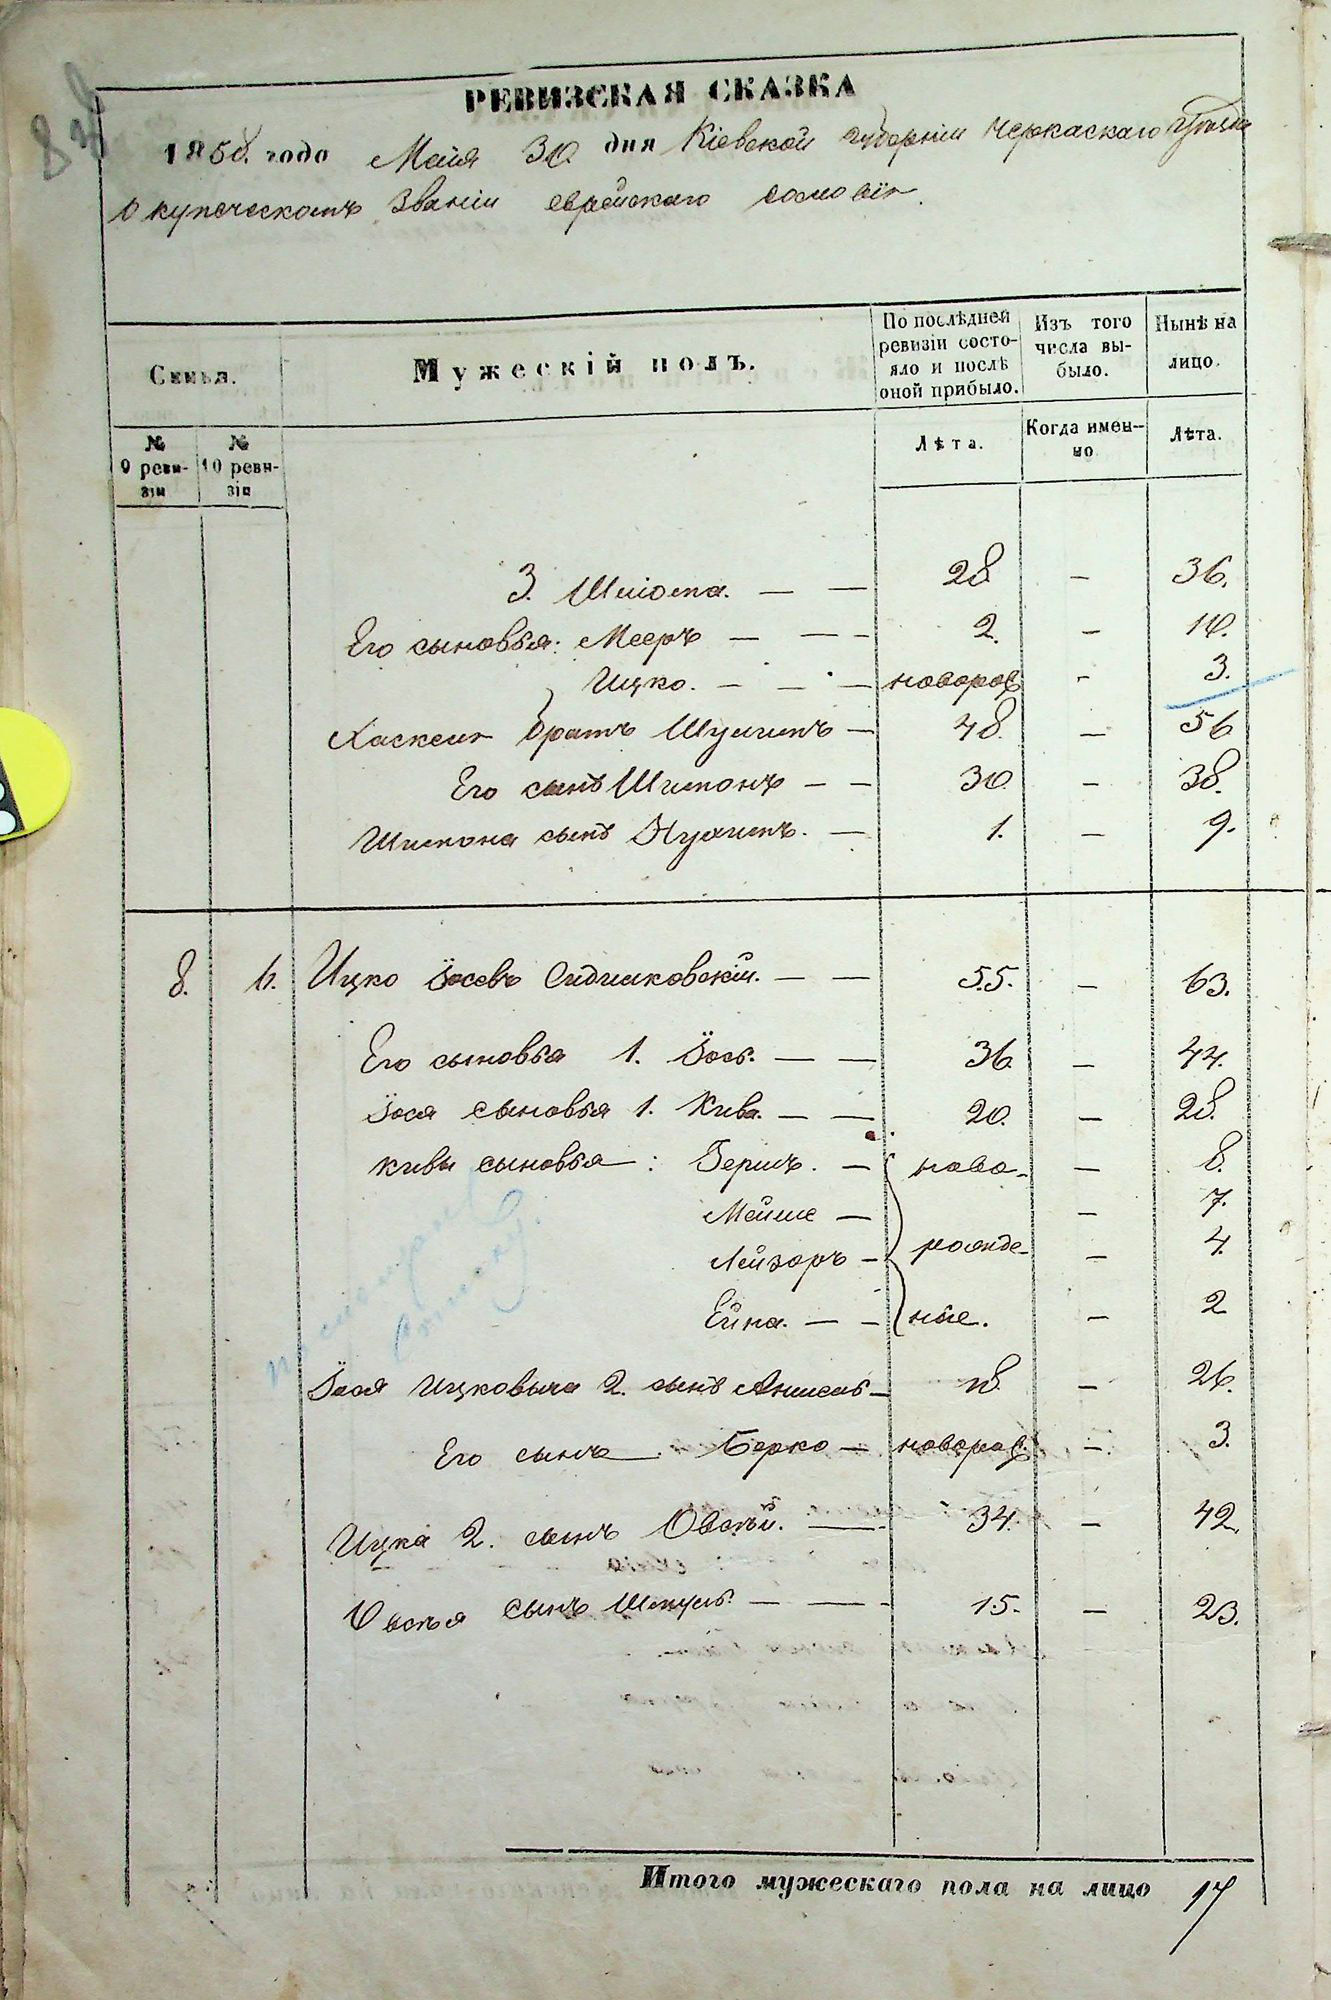 РЕВИЗСКАЯ СКАЗКА
1858. года Майя 30. дня Кіевской губерніи Черкаскаго
О купеческомъ званіи еврейскаго сословія.
Семья.
Мужескій полъ.
По послѣдней ревизіи состояло и послѣ оной прибыло.
Изъ того числа выбыло.
Нынѣ на лицо.
№ 9 ревизіи
№ 10 ревизіи
Лѣта.
Когда именно
Лѣта.
3. Шліома. — — 28 — 36.
Его сыновья: Мееръ — — — 2. — 10.
Ицко. — — — новорож — 3.
Хаскеля братъ Шулимъ — 48. — 56
Его сынъ Шимонъ — — 30 — 38.
Шимона сынъ Нухимъ. — 1. — 9.
8. 6. Ицко Іосевъ Сидликовскій. — — 55. — 63.
Его сыновья 1. Іось. — — 36 — 44.
Іося сыновья 1. Кива. — — 20. — 28.
Кивы сыновья: Гершъ. — ново- — 8.
Мейше — — 7.
Лейзоръ — рожде- — 4.
Ейна. — — ные. — 2
Іося Ицковича 2. сынъ Аншель — 18. — 26.
Его сынъ Берко — новорож. — 3.
Ицка 2. сынъ Овсѣй. — 34. — 42.
Овсѣя сынъ Шмуль — — 15. — 23.
Итого мужескаго пола на лицо 17